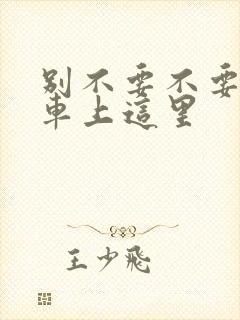 別不要不要
車上這里
王少飛